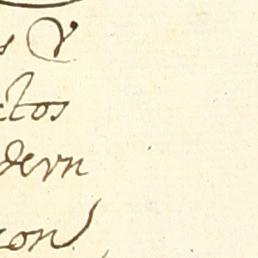 s Y
ctos
dern
con